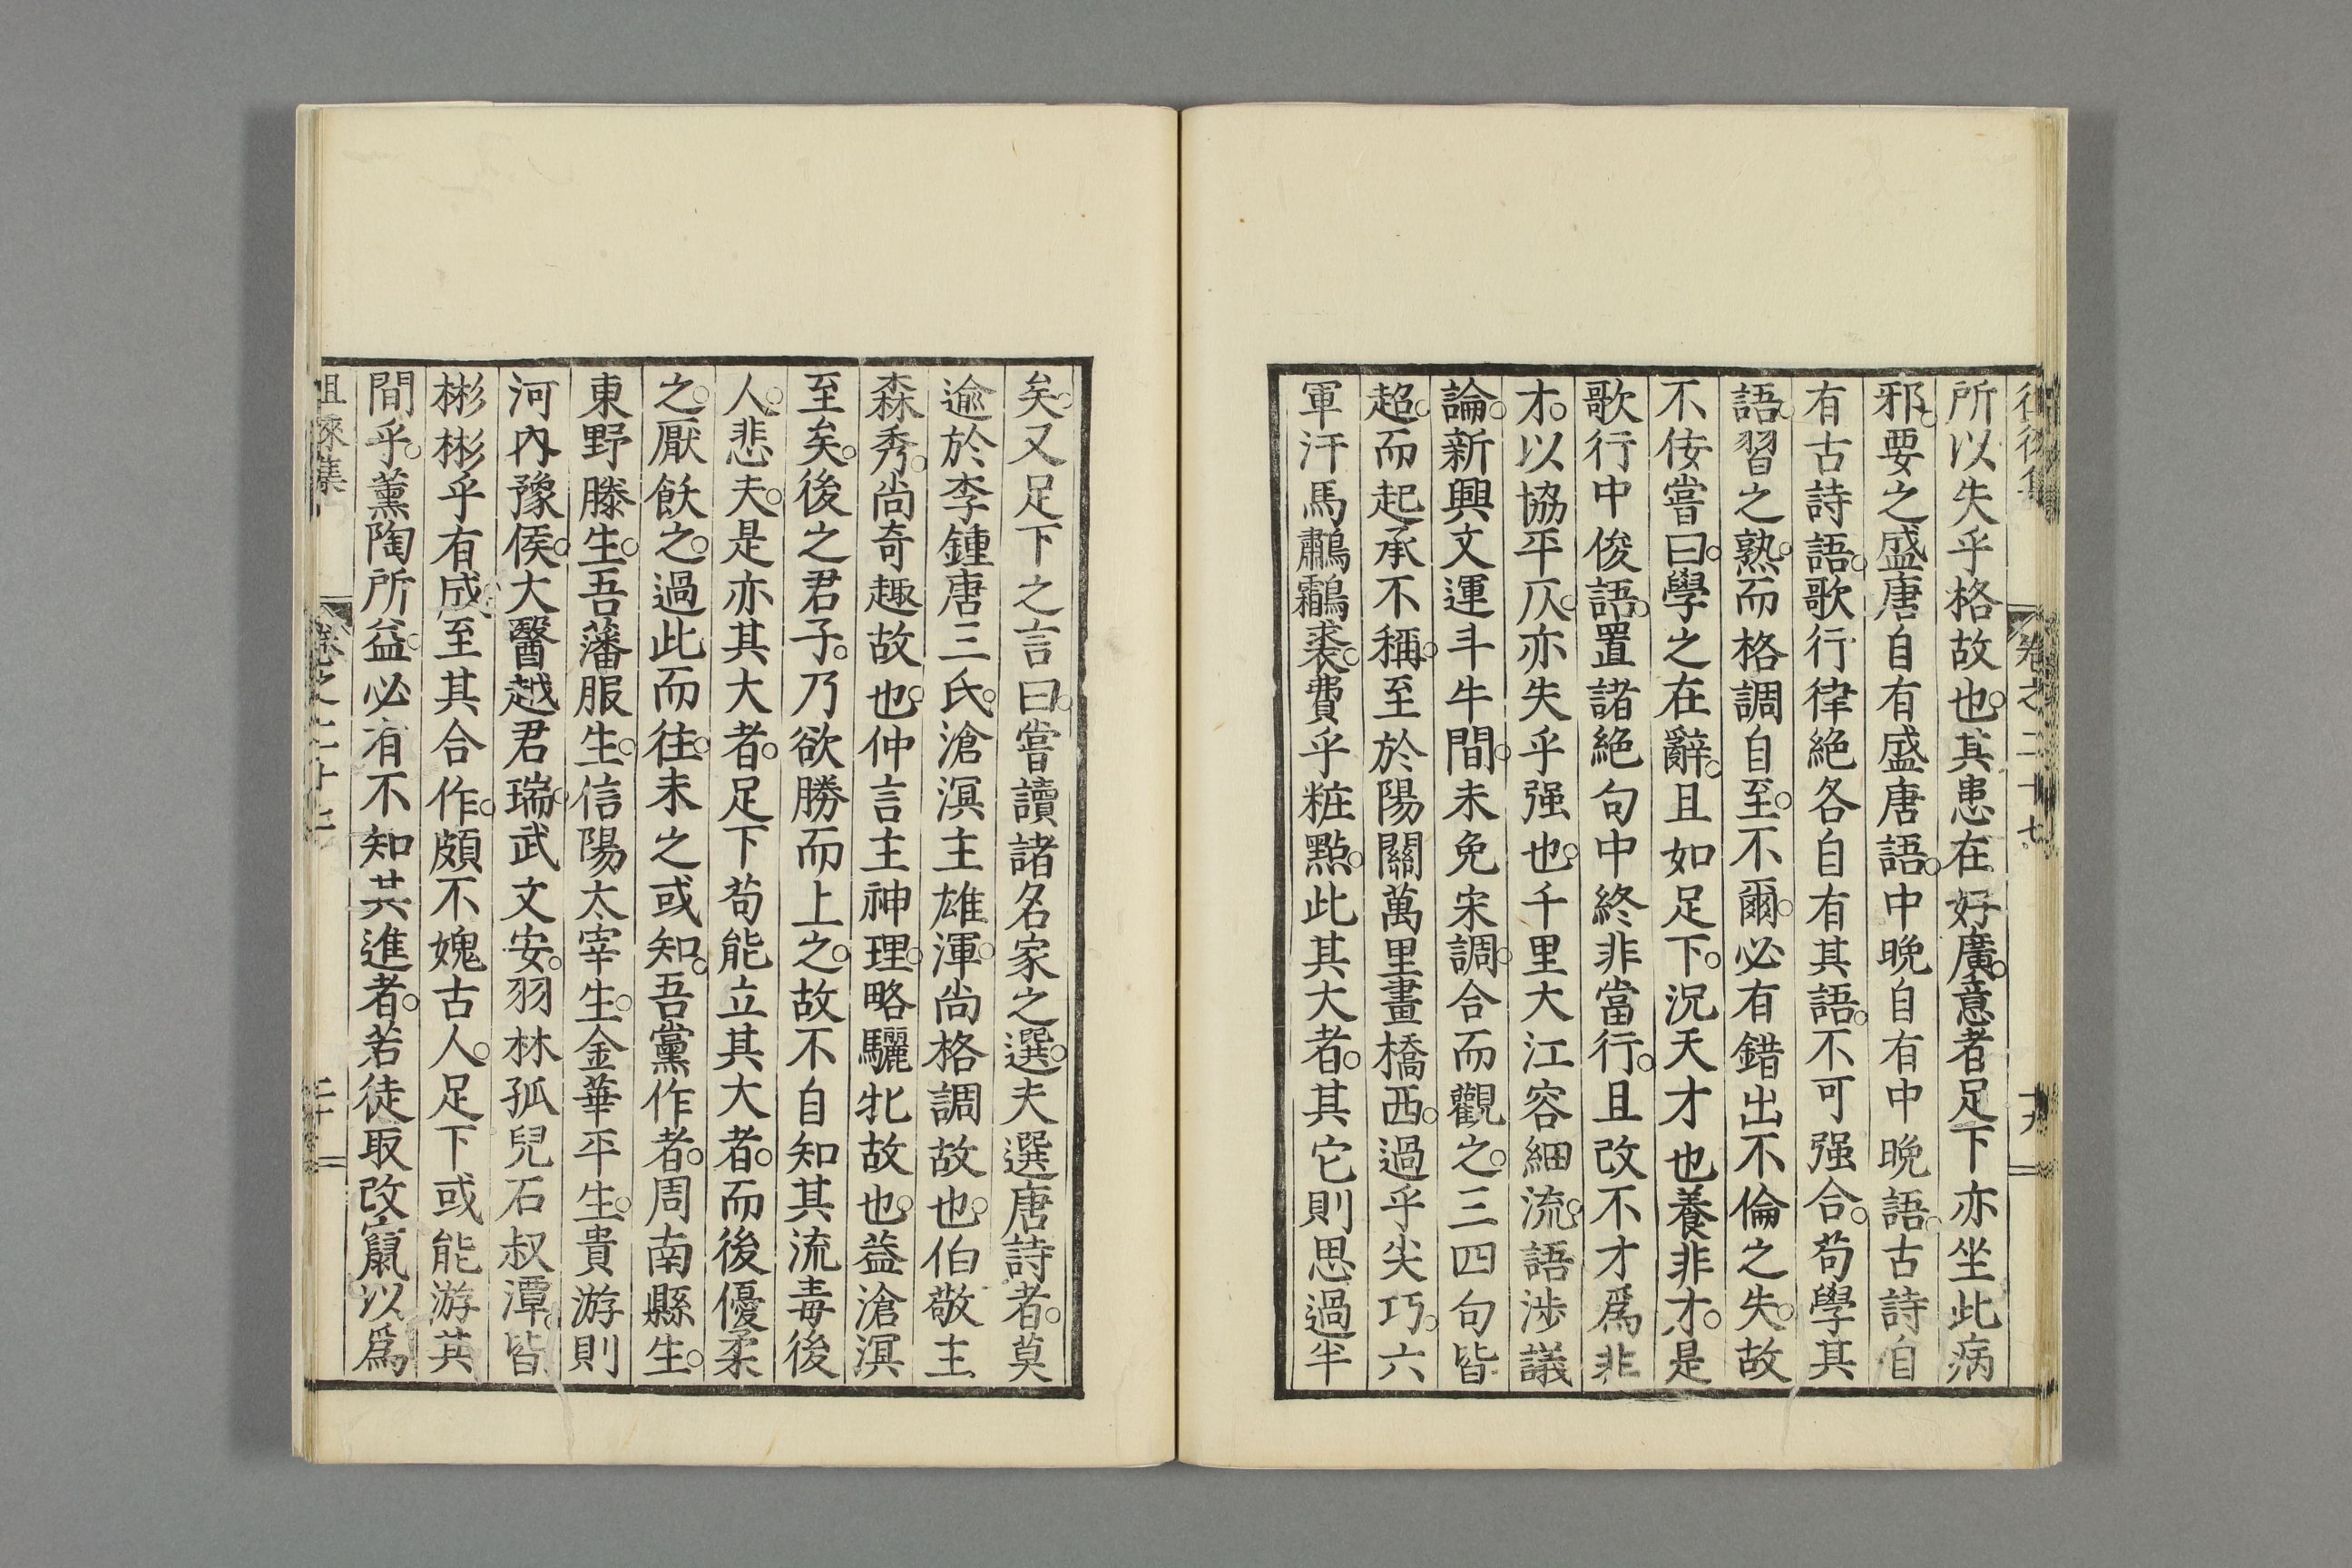 卷之二十七 十九
所以失乎格故也。其患在好廣意者足下亦坐此病
邪。要之盛唐自有盛唐語。中晚自有中晚語。古詩自
有古詩語。歌行律絕各自有其語。不可强合。苟學其
語。習之熟。而格調自至。不爾。必有錯出不倫之失。故
不佞嘗曰。學之在辭。且如足下。況天才也養非才。是
歌行中俊語。置諸絕句中終非當行。且改不才爲非
才。以協平仄。亦失乎强也。千里大江容細流。語涉議
論。新興文運斗牛間。未免宋調。合而觀之。三四句皆
超。而起承不稱。至於陽關萬里畫橋西。過乎尖巧。六
軍汗馬鷫鸘裘。費乎粧點。此其大者。其它則思過半
矣。又足下之言曰。嘗讀諸名家之選。夫選唐詩者。莫
逾於李鍾唐三氏。滄溟主雄渾。尚格調故也。伯敬主
森秀。尚奇趣故也。仲言主神理。略驪牝故也。益滄溟
至矣。後之君子。乃欲勝而上之。故不自知其流毒後
人。悲夫。是亦其大者。足下苟能立其大者。而後優柔
之。厭飫之。過此而往。未之或知。吾黨作者。周南縣生。
東野滕生。吾藩服生。信陽太宰生。金華平生。貴游則
河內豫侯。大醫越君瑞。武文安。羽林孤兒石叔潭。皆
彬彬乎有成。至其合作。頗不媿古人。足下或能游其
間乎。薰陶所益。必有不知其進者。若徒取改竄以爲
徂徠集 卷之二十七 二十